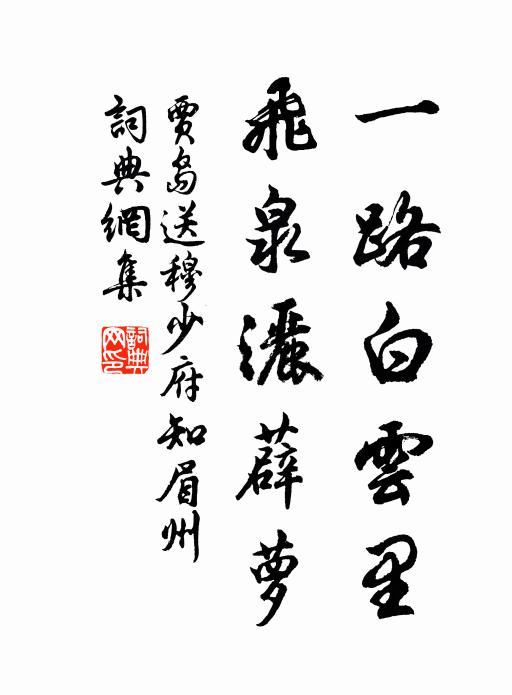 一路白雲里
飛泉灑薜夢
賈島送穆少府知眉州
詞典網集
詞典网印